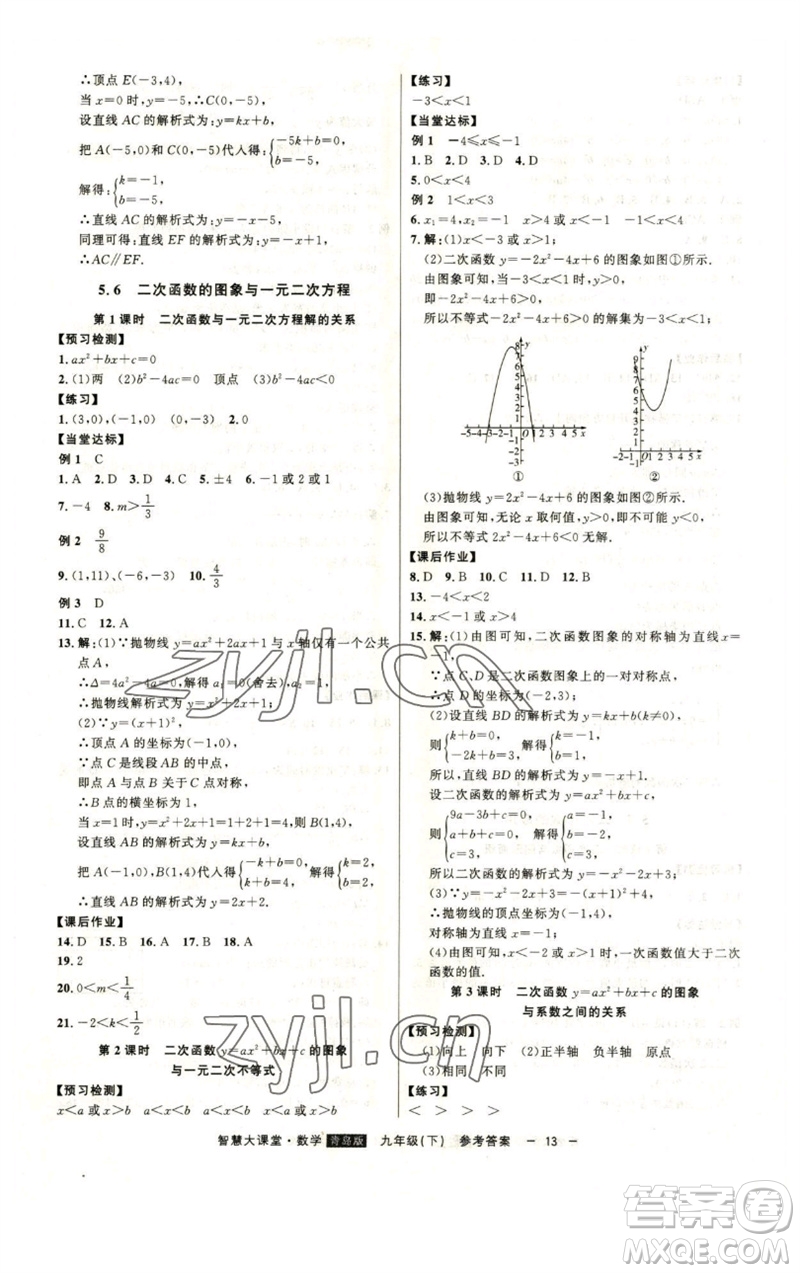 ∴顶点 E(-3,4),
当 x=0 时,y=-5,∴C(0,-5),
设直线 AC 的解析式为:y=kx+b,
把 A(-5,0)和 C(0,-5)代入得:{-5k+b=0, b=-5,
解得:{k=-1, b=-5,
∴直线 AC 的解析式为:y=-x-5,
同理可得:直线 EF 的解析式为:y=-x+1,
∴AC∥EF.
5.6 二次函数的图象与一元二次方程
第 1 课时 二次函数与一元二次方程解的关系
【预习检测】
1.ax²+bx+c=0
2.(1)两 (2)b²-4ac=0 顶点 (3)b²-4ac<0
【练习】
1.(3,0),(-1,0) (0,-3) 2.0
【当堂达标】
例 1 C
1.A 2.D 3.D 4.C 5.±4 6.-1 或 2 或 1
7.-4 8.m>1/3
例 2 9/8
9.(1,11),(-6,-3) 10.4/3
例 3 D
11.C 12.A
13.解:(1)∵抛物线 y=ax²+2ax+1 与 x 轴仅有一个公共
点 A,
∴Δ=4a²-4a=0,解得 a₁=0(舍去),a₂=1,
∴抛物线解析式为 y=x²+2x+1;
(2)∵y=(x+1)²,
∴顶点 A 的坐标为(-1,0),
∵点 C 是线段 AB 的中点,
即点 A 与点 B 关于 C 点对称,
∴B 点的横坐标为 1,
当 x=1 时,y=x²+2x+1=1+2+1=4,则 B(1,4),
设直线 AB 的解析式为 y=kx+b,
把 A(-1,0),B(1,4)代入得{-k+b=0, k+b=4, 解得{k=2, b=2,
∴直线 AB 的解析式为 y=2x+2.
【课后作业】
14.D 15.B 16.A 17.B 18.A
19.2
20.0<m<1/4
21.-2<k<1/2
第 2 课时 二次函数 y=ax²+bx+c 的图象
与一元二次不等式
【预习检测】
x<a 或 x>b a<x<b a<x<b x<a 或 x>b
【练习】
-3<x<1
【当堂达标】
例 1 -4≤x≤-1
1.B 2.D 3.D 4.D
5.0<x<4
例 2 1<x<3
6.x₁=4,x₂=-1 x>4 或 x<-1 -1<x<4
7.解:(1)x<-3 或 x>1;
(2)二次函数 y=-2x²-4x+6 的图象如图①所示.
由图象可知,当-3<x<1 时,y>0,
即-2x²-4x+6>0,
所以不等式-2x²-4x+6>0 的解集为-3<x<1;
① ②
(3)抛物线 y=2x²-4x+6 的图象如图②所示.
由图象可知,无论 x 取何值,y>0,
所以不等式 2x²-4x+6<0 无解.
【课后作业】
8.D 9.B 10.C 11.D 12.B
13.-4<x<2
14.x<-1 或 x>4
15.解:(1)由图可知,二次函数图象的对称轴为直线 x=
-1,
∵点 C、D 是二次函数图象上的一对对称点,
∴点 D 的坐标为(-2,3);
(2)设直线 BD 的解析式为 y=kx+b(k≠0),
则{k+b=0, -2k+b=3, 解得{k=-1, b=1,
所以,直线 BD 的解析式为 y=-x+1,
设二次函数的解析式为 y=ax²+bx+c,
则{9a-3b+c=0, a+b+c=0, c=3, 解得{a=-1, b=-2, c=3,
所以二次函数的解析式为 y=-x²-2x+3;
(3)∵y=-x²-2x+3=-(x+1)²+4,
∴抛物线的顶点坐标为(-1,4),
对称轴为直线 x=-1;
(4)由图可知,x<-2 或 x>1 时,一次函数值大于二次
函数的值.
第 3 课时 二次函数 y=ax²+bx+c 的图象
与系数之间的关系
【预习检测】
(1)向上 向下 (2)正半轴 负半轴 原点
(3)相同 不同
【练习】
< > > >
智慧大课堂·数学 青岛版 九年级(下) 参考答案 - 13 -
zyjl.cn
zyjl.cn
答案圈
MXQE.COM